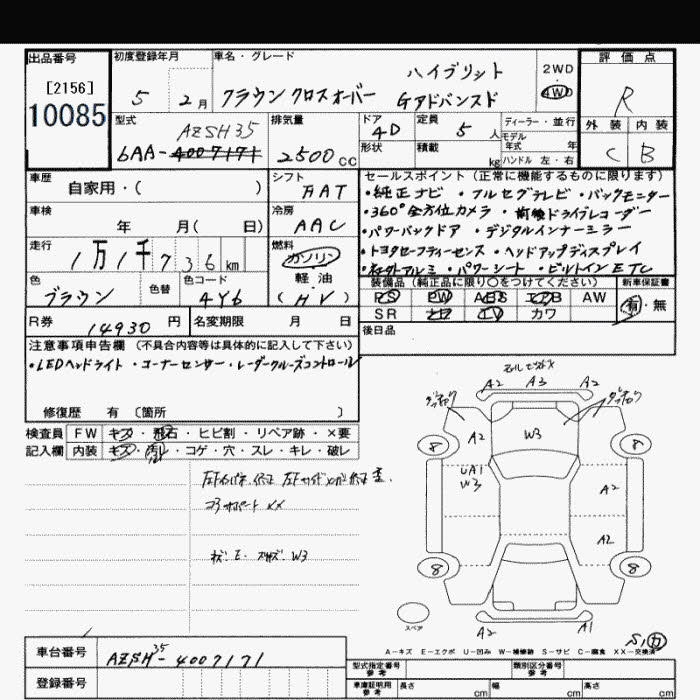 出品番号
[2156]
10085
初度登録年月
5 2月
車名・グレード
ハイブリット
クラウン クロスオーバー Gアドバンスド
2WD
4WD
評価点
R
外装 内装
C B
型式
AZSH35
6AA-4007171
排気量
2500cc
ドア
4D
形状
定員
5人
積載
kg
ディーラー・並行
モデル年式 年
ハンドル 左・右
車歴
自家用・( )
シフト
FAT
車検
年 月( 日)
冷房
AAC
走行
1万1千736km
燃料
ガソリン
軽油
(H.V)
色
ブラウン
色替
色コード
4Y6
R券
14930円
名変期限 月 日
セールスポイント(正常に機能するものに限ります)
・純正ナビ ・フルセグテレビ ・バックモニター
・360°全方位カメラ ・前後ドライブレコーダー
・パワーバックドア ・デジタルインナーミラー
・トヨタセーフティーセンス ・ヘッドアップディスプレイ
・社外アルミ ・パワーシート ・ビルトインETC
装備品(純正品に限り○をつけてください)
新車保証書
PS PW ABS エアB AW
SR ナビ TV カワ
有・無
後日品
注意事項申告欄(不具合内容等は具体的に記入して下さい)
・LEDヘッドライト・コーナーセンサー・レーダークルーズコントロール
修復歴 有 〔箇所 〕
検査員 FW キズ・飛石・ヒビ割・リペア跡・×要
記入欄 内装 キズ・汚れ・コゲ・穴・スレ・キレ・破レ
コアサポート XX
W3
A2 A3 A2
A2 W3
8 8
UA1
W3
A2
A2
8 8
スペア
A2 A1
A-キズ E-エクボ U-凹み W-補修跡 S-サビ C-腐食 XX-交換済
車台番号
AZSH35-4007171
登録番号
型式指定番号
参考
類別区分番号
参考
車庫証明用
参考
長さ cm 幅 cm 高さ cm